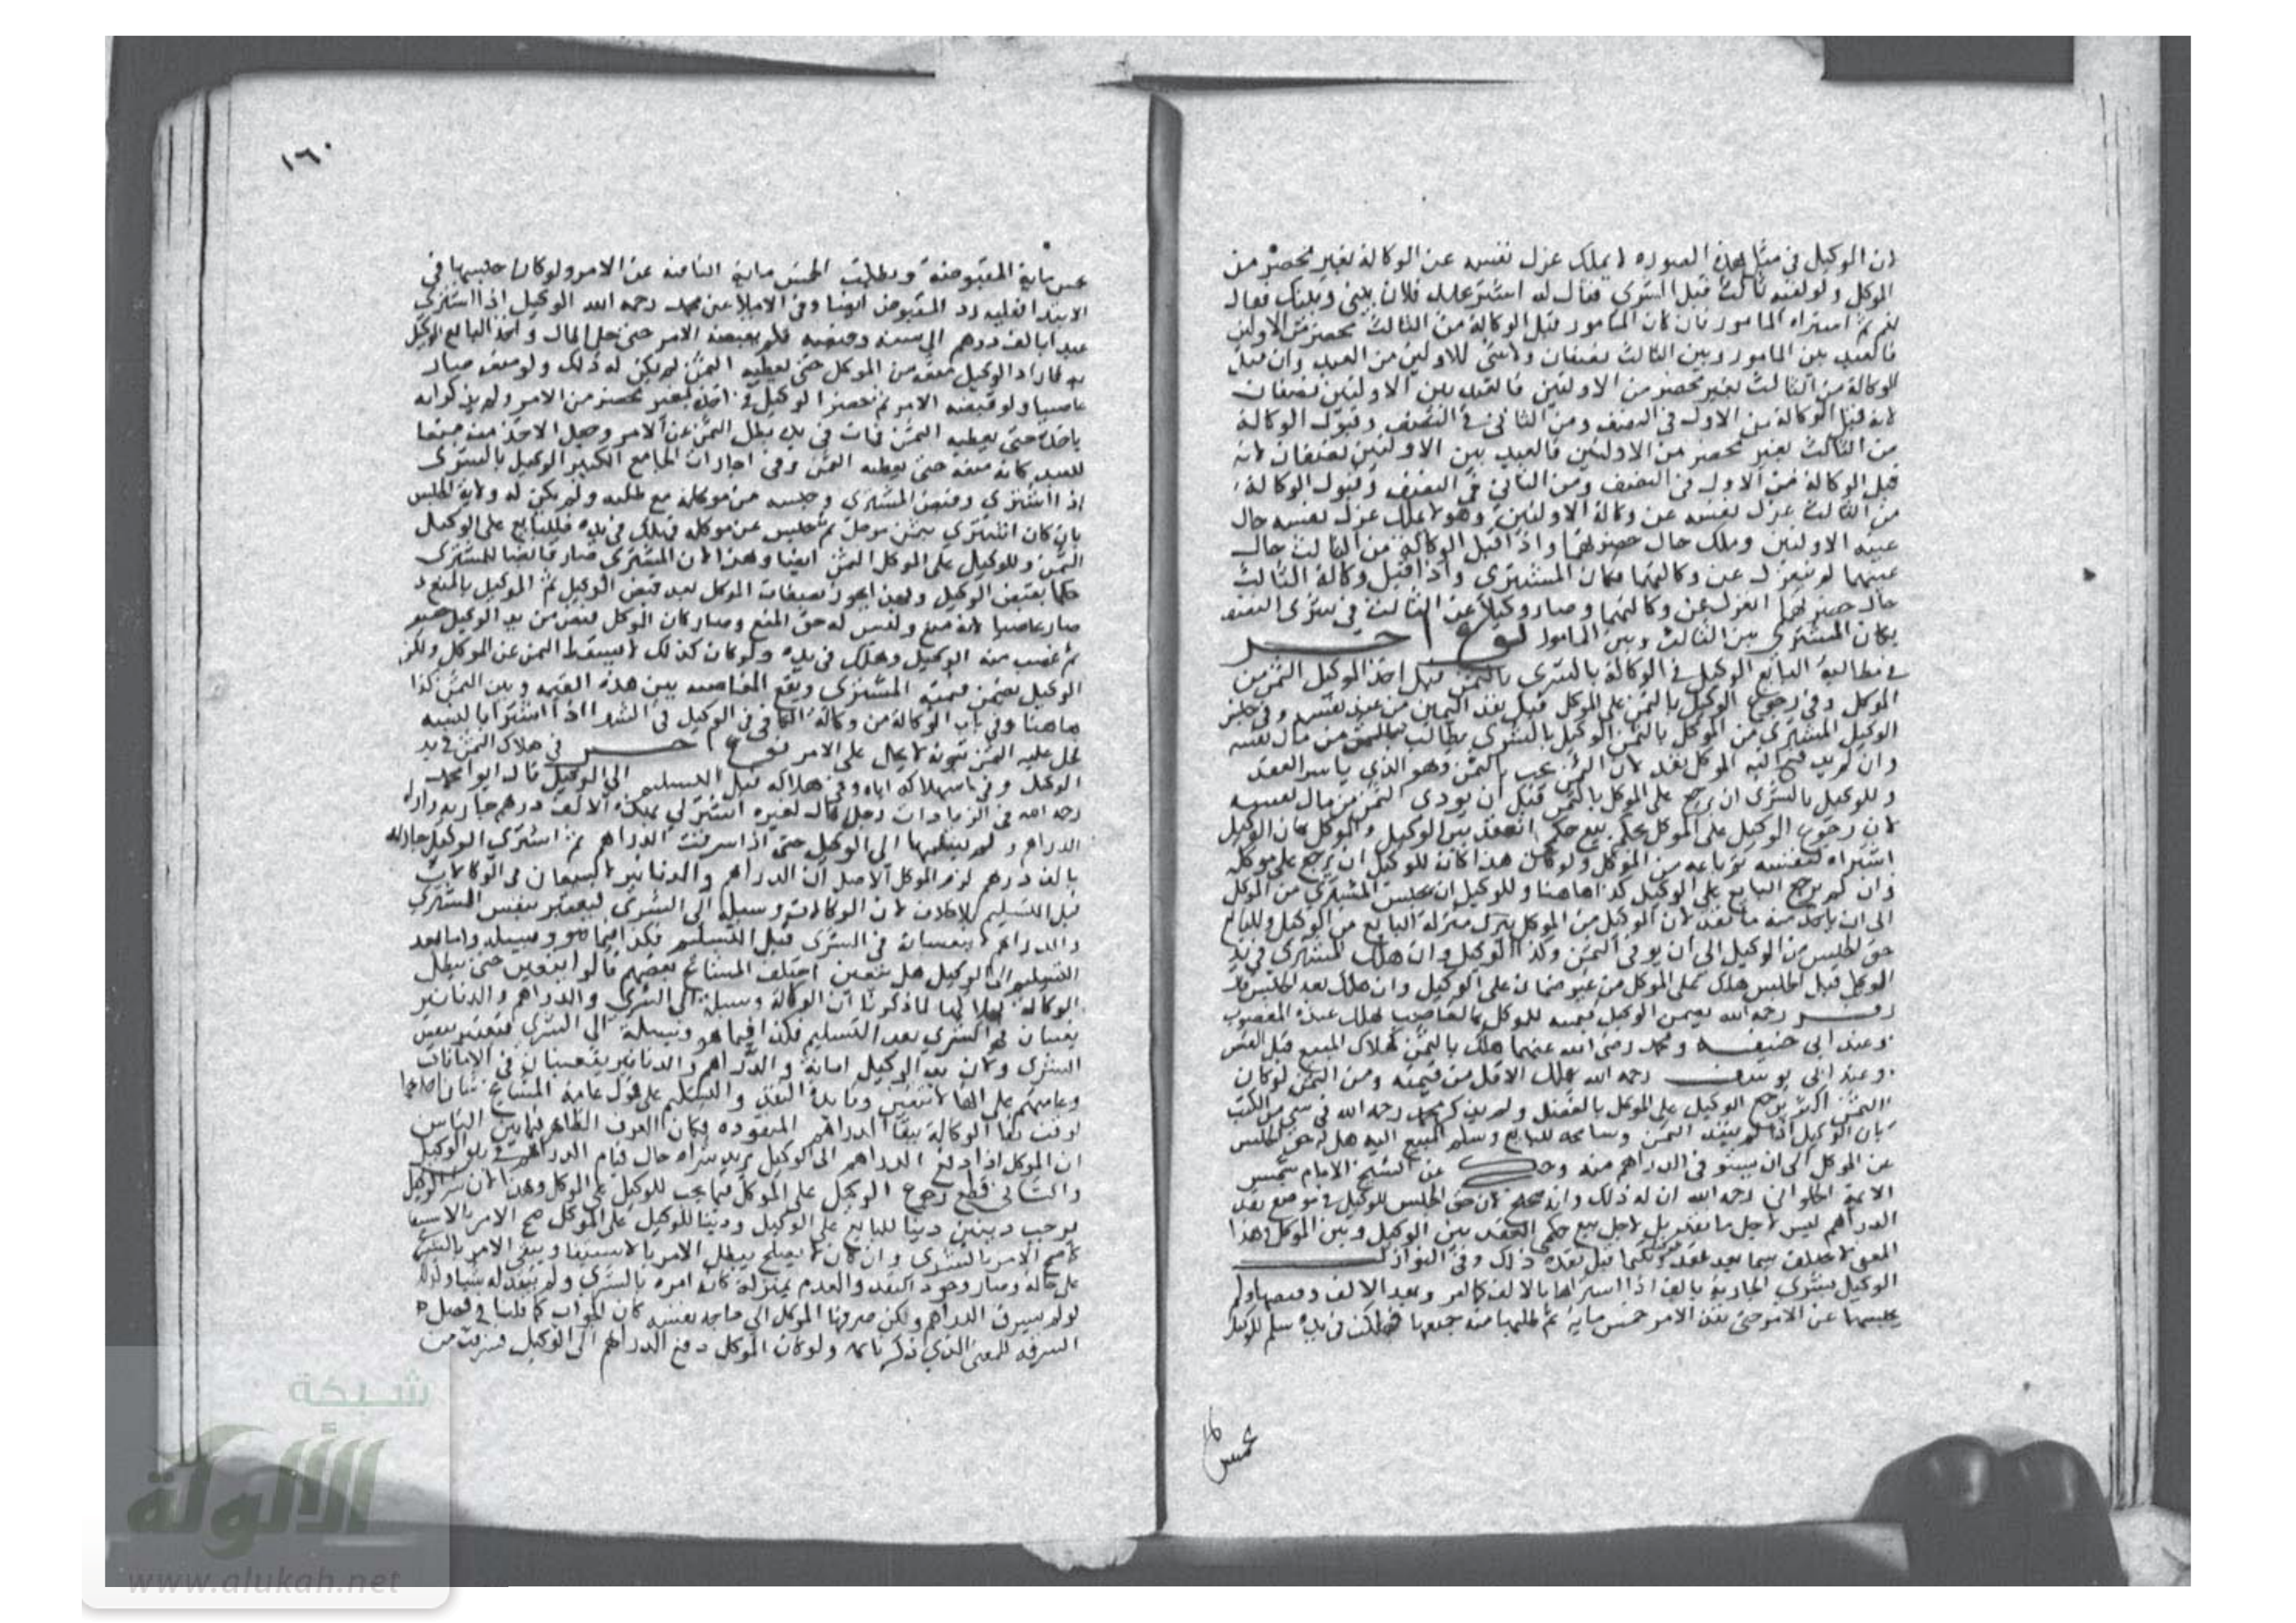 لان الوكيل في مثل هذه الصوره لا يملك عزل نفسه عن الوكالة بغير محضر من
الموكل ولو لقيه ثالث قبل الشرى فقال له اشتر عبد فلان بيني وبينك فقال
نعم ثم اشتراه المامور فان كان المامور قبل الوكالة من الثالث بمحضر من الاولين
فالعبد بين المامور وبين الثالث نصفان ولا شئ للاولين من العبد وان قبل
الوكالة من الثالث بغير محضر من الاولين فالعبد بين الاولين نصفان
لانه قبل الوكالة من الاول في النصف ومن الثاني في النصف وقبول الوكالة
من الثالث بغير محضر من الاولين فالعبد بين الاولين نصفان لانه
قبل الوكالة من الاول في النصف ومن الثاني في النصف وقبول الوكالة
من الثالث عزل نفسه عن وكالة الاولين وهو لا يملك عزل نفسه حال
غيبة الاولين وملك حال حضرتهما واذا قبل الوكالة من الثالث حال
غيبتهما لم ينعزل عن وكالتهما فكان المشترى واذا قبل وكالة الثالث
حال حضرتهما انعزل عن وكالتهما وصار وكيلا عن الثالث في شرى النصف
فكان المشترى بين الثالث وبين المامور نوع اخر
في مطالبة البايع الوكيل في الوكالة بالشرى بالثمن قبل اخذ الوكيل الثمن من
الموكل وفي رجوع الوكيل بالثمن على الموكل قبل نقد الثمن من عند نفسه وفي حبس
الوكيل المشترى من الموكل بالثمن الوكيل بالشرى يطالب بالثمن من مال نفسه
وان لم يدفع اليه الموكل بعد لان الثمن يجب بالعقد وهو الذي باشر العقد
وللوكيل بالشرى ان يرجع على الموكل بالثمن قبل ان يودي الثمن من مال نفسه
لان رجوع الوكيل على الموكل بحكم بيع حكمي انعقد بين الوكيل والموكل كان الوكيل
اشتراه لنفسه ثم باعه من الموكل ولو كان هذا كان للوكيل ان يرجع على موكله
وان لم يرجع البايع على الوكيل كذا هاهنا وللوكيل ان يحبس المشترى من الموكل
الى ان ياخذ منه ما نقد لان الوكيل من الموكل نزل منزلة البايع من الوكيل وللبايع
حق الحبس من الوكيل الى ان يوفي الثمن وكذا الوكيل وان هلك المشترى في يد
الوكيل قبل الحبس هلك على الموكل من غير ضمان على الوكيل وان هلك بعد الحبس قال
زفر رحمه الله يضمن الوكيل قيمته للموكل كالغاصب لهلاك عنده المغصوب
وعند ابى حنيفه ومحمد رضى الله عنهما هلك بالثمن كهلاك المبيع قبل القبض
وعند ابى يوسف رحمه الله يهلك بالاقل من قيمته ومن الثمن لو كان
الثمن اكثر يرجع الوكيل على الموكل بالفضل ولم يذكر محمد رحمه الله في شى من الكتب
بان الوكيل اذا لم ينقد الثمن وسامحه البايع وسلم المبيع اليه هل له حق الحبس
عن الموكل الى ان يستوفى الدراهم منه وحكي عن الشيخ الامام شمس
الائمة الحلواني رحمه الله ان له ذلك وانه صحيح لان حق الحبس للوكيل في موضع نقد
الدراهم ليس لاجل ما نقد بل لاجل بيع حكمي انعقد بين الوكيل وبين الموكل وهذا
المعنى لا يختلف فيما بعد نقده وفيما قبل نقده ذلك وفي النوازل
الوكيل بشرى الجارية بالف اذا اشتراها بالالف كالمر ونقد الالف وقبضها ولم
يحبسها عن الامر حتى نقد الامر خمس ماية ثم طلبها منه فمنعها فهلكت في يده سلم للوكيل
خمس
١٦٠
خمس ماية المقبوضة وبطلت الخمس ماية الثانية عن الامر ولو كان حبسها في
الابتدا فعليه رد المقبوض ايضا وفي الاملا عن محمد رحمه الله الوكيل اذا اشترى
عبدا بالف درهم الى سنة وقبضه فلم يقبضه الامر حتى حل المال واخذ البايع الوكيل
به فاراد الوكيل منعه من الموكل حتى يعطيه الثمن لم يكن له ذلك ولو منعه صار
غاصبا ولو قبضه الامر ثم حضر الوكيل فاخذه بغير محضر من الامر ولم يذكر انه
ياخذه حتى يعطيه الثمن فمات في يده بطل الثمن عن الامر وجعل الاخذ منه منعا
للعبد كانه منعه حتى يعطيه الثمن وفي اجارات الجامع الكبير الوكيل بالشرى
اذا اشترى وقبض المشترى وحبسه عن موكله مع طلبه ولم يكن له ولاية الحبس
بان كان اشترى بثمن موجل ثم حبس عن موكله فهلك في يده فللبايع على الوكيل
الثمن وللوكيل على الموكل الثمن ايضا وهذا لان المشترى صار قابضا للمشترى
حكما بقبض الوكيل ولهذا يجوز تصرفات الموكل بعد قبض الوكيل ثم الوكيل بالمنع
صار غاصبا لانه منع وليس له حق المنع وصار كان الموكل قبض من يد الوكيل
ثم غصب منه الوكيل وهلك في يده ولو كان كذلك لا يسقط الثمن عن الموكل ولكن
الوكيل يضمن قيمة المشترى وتقع المقاصة بين هذه القيمة وبين الثمن كذا
هاهنا وفي باب الوكالة من وكالة الكافي في الوكيل في الشرا اذا اشترا بالنسيه
فحل عليه الثمن بموته لا يحل على الامر نوع اخر في هلاك الثمن في يد
الوكيل وفي استهلاكه اياه وفي هلاكه قبل التسليم الى الوكيل قال ابو محمد
رحمه الله في الزيادات رجل قال لغيره اشتر لي بهذه الالف درهم جاريه واراه
الدراهم ولم يسلمها الى الوكيل حتى اذا سرقت الدراهم ثم اشترى الوكيل جاريه
بالف درهم لزم الموكل الاصل ان الدراهم والدنانير لا يتعينان في الوكالات
قبل التسليم بلا خلاف لان الوكالات وسيلة الى الشرى فيعتبر بنفس الشرى
والدراهم لا يتعينان في الشرى قبل التسليم فكذا فيما هو وسيلة واما بعد
التسليم الى الوكيل هل يتعين اختلف المشائخ بعضهم قالوا يتعين حتى يبطل
الوكالة بهلاكها لما ذكرنا ان الوكالة وسيلة الى الشرى والدراهم والدنانير
يتعينان في الشرى بعد التسليم فكذا فيما هو وسيلة الى الشرى فتعتبر بنفس
الشرى ولان يد الوكيل امانة والدراهم والدنانير يتعينان في الامانات
وعامتهم على انها لا تتعين وفائدة النقد والتسليم على قول عامة المشايخ شيان احدهما
توقت بقا الوكالة ببقا الدراهم المنقوده فكان العرف الظاهر فيما بين الناس
ان الموكل اذا دفع الدراهم الى الوكيل يريد شراه حال قيام الدراهم في يد الوكيل
والثاني قطع رجوع الوكيل على الموكل فيما يجب للوكيل على الموكل وهذا لان شرى الوكيل
يوجب دينين دينا للبايع على الوكيل ودينا للوكيل على الموكل صح الامر بالاستيفا
كما صح الامر بالشرى وان كان لا يصلح يبطل الامر بالاستيفا ويبقى الامر بالشرى
على حاله وصار وجود النقد والعدم بمنزلة كانه امره بالشرى ولم ينقد له شيا وكذلك
لو لم يسرق الدراهم ولكن صرفها الموكل الى حاجة نفسه كان الجواب كما قلنا في فصل
السرقه للمعنى الذي ذكرناه ولو كان الموكل دفع الدراهم الى الوكيل فسرقت من
شبكة
الألوكة
www.alukah.net